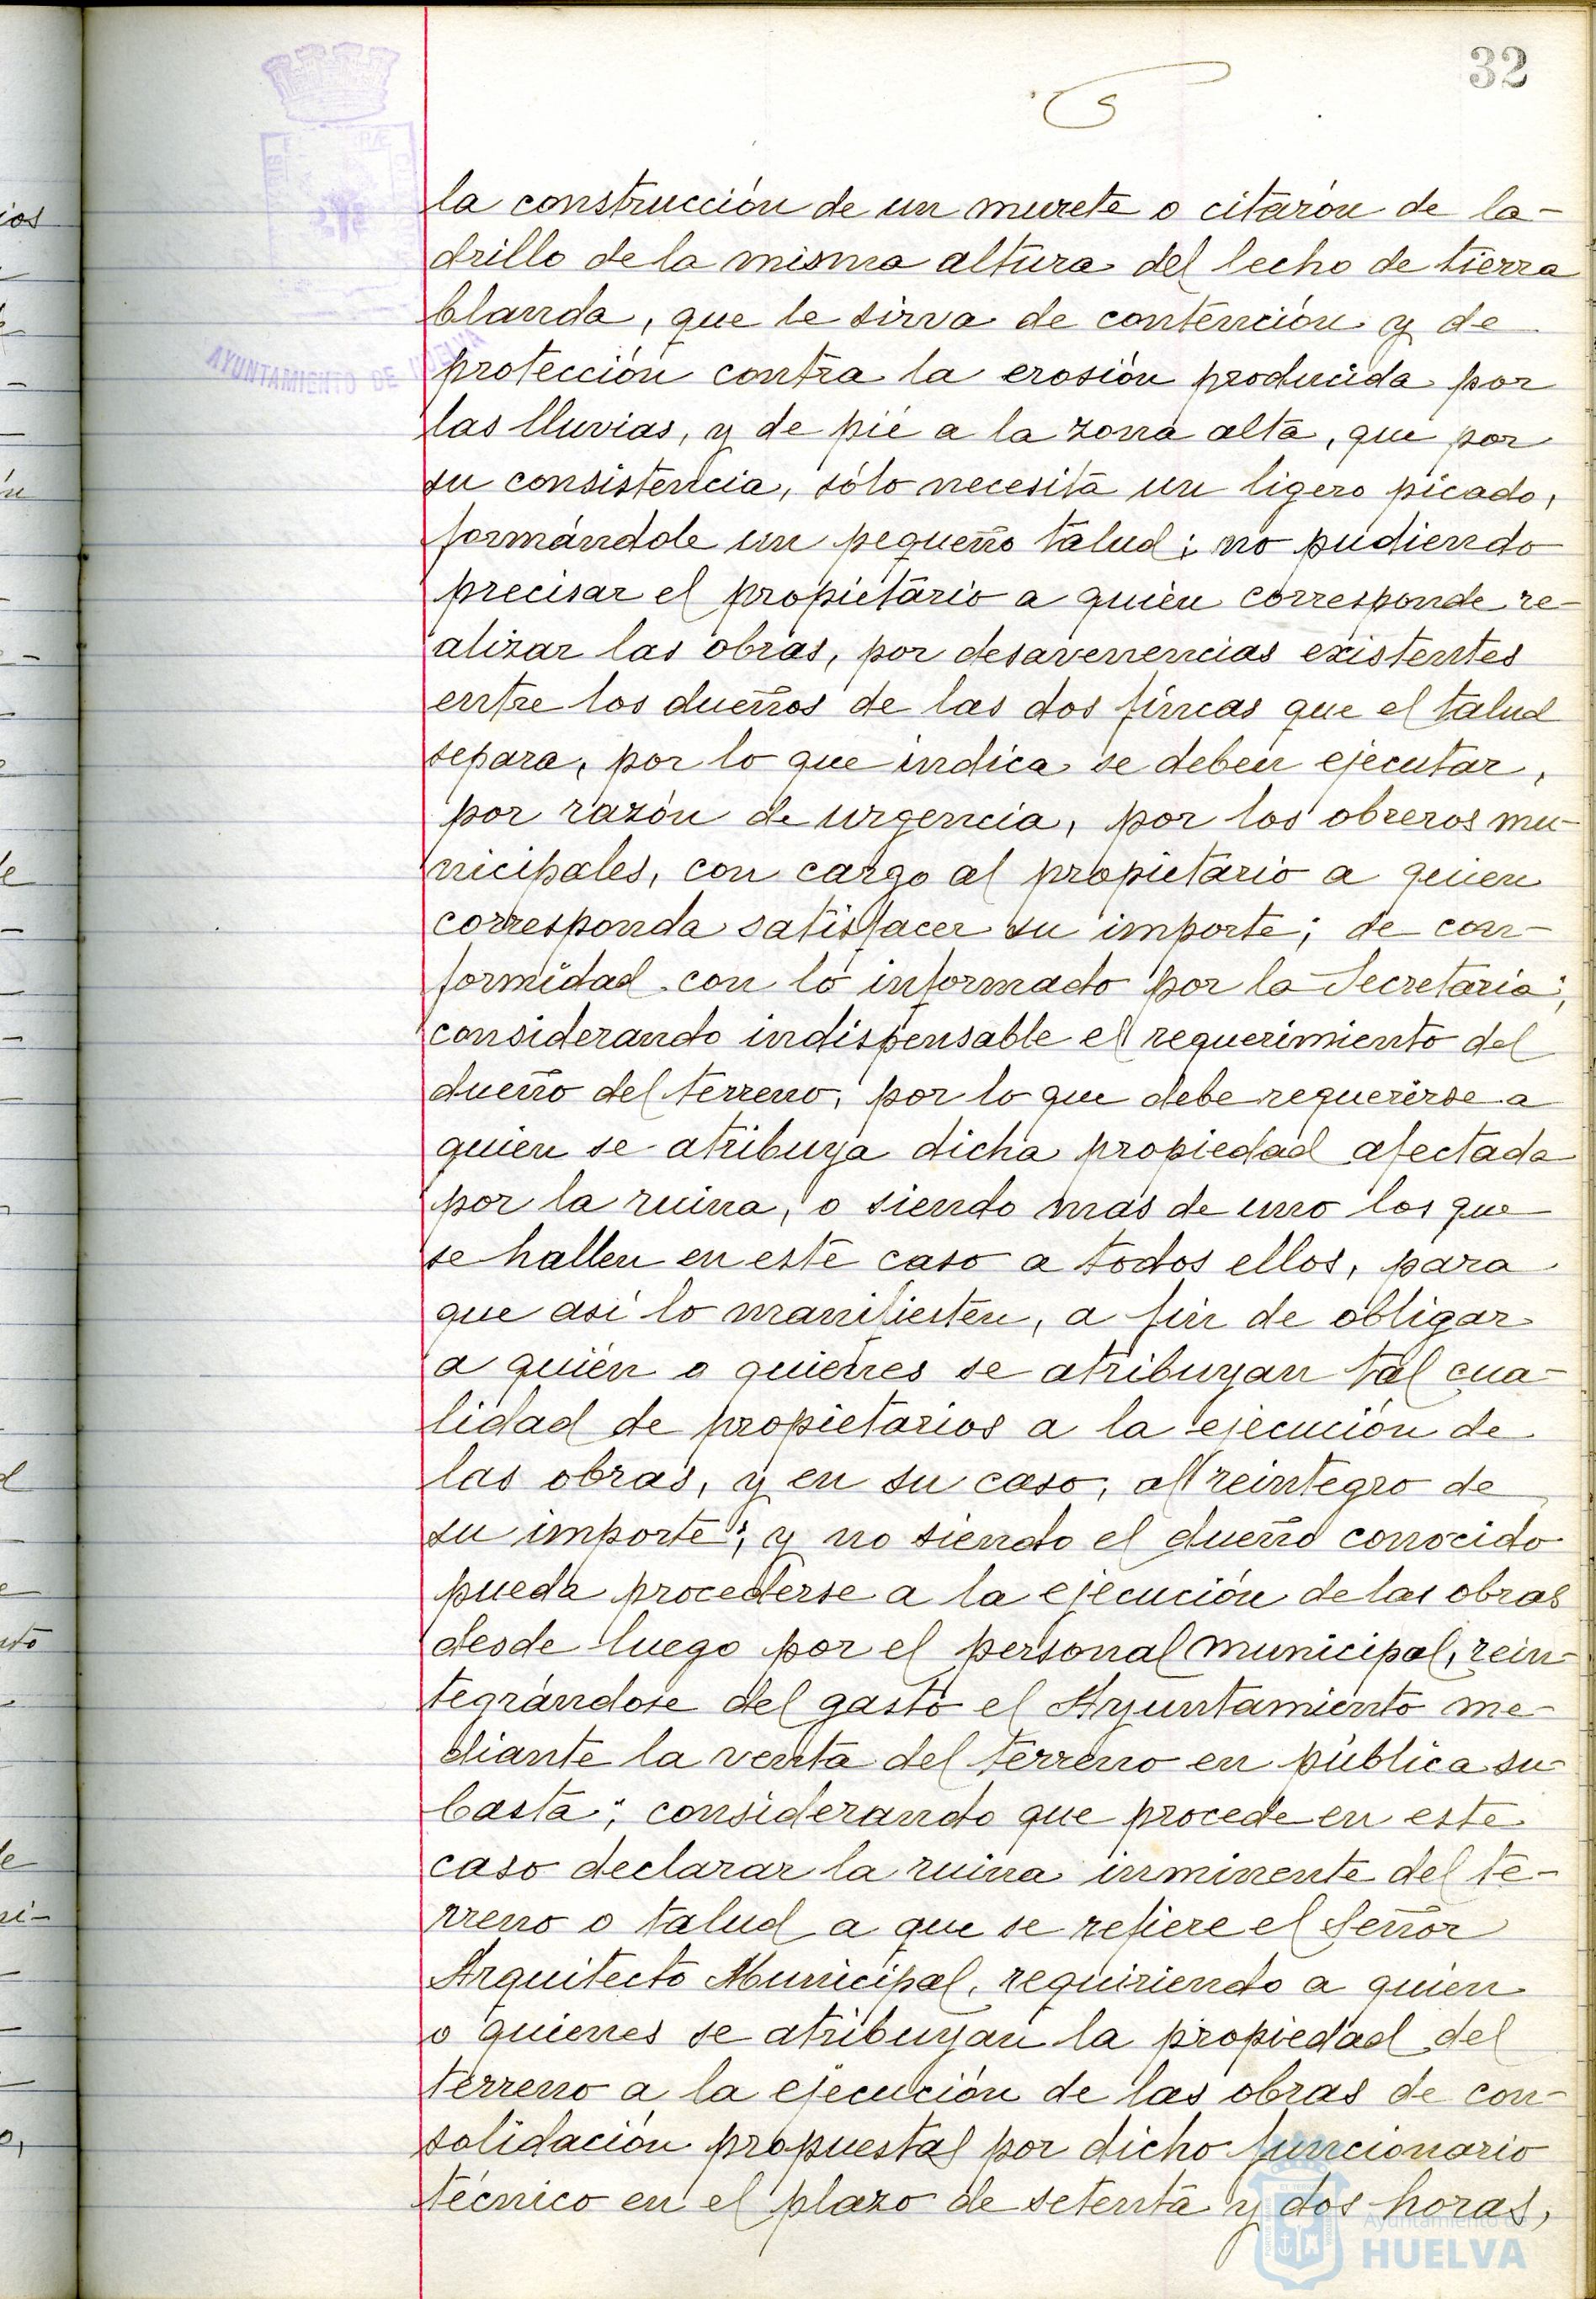 32
la construcción de un murete o citarón de la-
drillo de la misma altura del lecho de tierra
blanda, que le sirva de contención y de
protección contra la erosión producida por
las lluvias, y de pié a la zona alta, que por
su consistencia, sólo necesita un ligero picado,
formándole un pequeño talud; no pudiendo
precisar el propietario a quien corresponde re-
alizar las obras, por desavenencias existentes
entre los dueños de las dos fincas que el talud
separa, por lo que indica se deben ejecutar,
por razón de urgencia, por los obreros mu-
nicipales, con cargo al propietario a quien
corresponda satisfacer su importe; de con-
formidad con lo informado por la Secretaria;
considerando indispensable el requerimiento del
dueño del terreno, por lo que debe requerirse a
quien se atribuya dicha propiedad afectada
por la ruina, o siendo más de uno los que
se hallen en este caso a todos ellos, para
que así lo manifiesten, a fin de obligar
a quien o quienes se atribuyan tal cua-
lidad de propietarios a la ejecución de
las obras, y en su caso, al reintegro de
su importe; y no siendo el dueño conocido
pueda procederse a la ejecución de las obras
desde luego por el personal municipal, rein-
tegrándose del gasto el Ayuntamiento me-
diante la venta del terreno en pública su-
basta; considerando que procede en este
caso declarar la ruina inminente del te-
rreno o talud a que se refiere el Señor
Arquitecto Municipal, requiriendo a quien
o quienes se atribuyan la propiedad del
terreno a la ejecución de las obras de con-
solidación propuestas por dicho funcionario
técnico en el plazo de setenta y dos horas,
AYUNTAMIENTO DE HUELVA
Ayuntamiento de
HUELVA